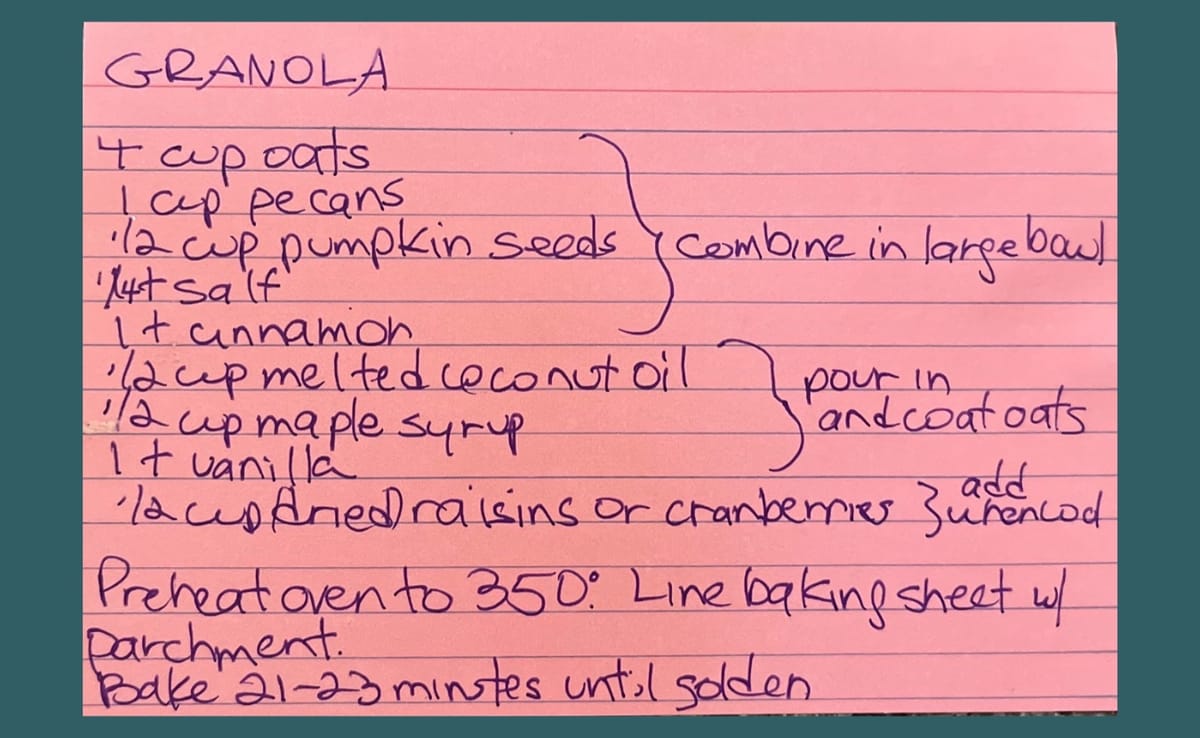 GRANOLA
4 cup oats
1 cup pecans
1/2 cup pumpkin seeds } combine in large bowl
1/4 t salt
1 t cinnamon
1/2 cup melted coconut oil } pour in
1/2 cup maple syrup and coat oats
1 t vanilla
1/2 cup dried raisins or cranberries } add when cool
Preheat oven to 350°. Line baking sheet w/
parchment.
Bake 21-23 minutes until golden